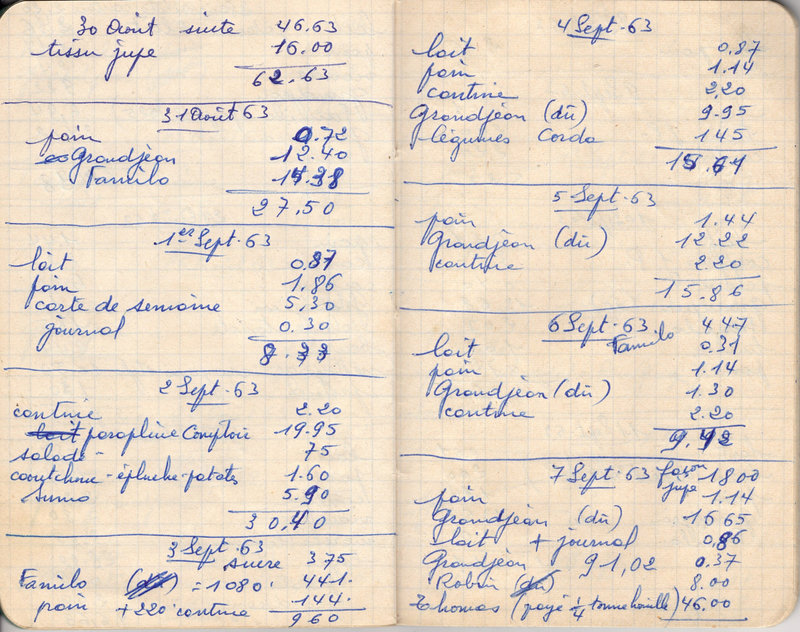 30 Août suite 46.63
tissu jupe 16.00
62.63
31 Août 63
pain 0.72
Grandjean 12.40
Familo 14.38
27,50
1er Sept. 63
lait 0.87
pain 1.86
carte de semaine 5,30
journal 0.30
8.33
2 Sept. 63
cantine 2.20
parapluie Comptoir 19.95
salade - 75
caoutchouc - épluche-patates 1.60
Sumo 5.90
30,40
3 Sept. 63
sucre 375
Familo = 1080. 441.
pain + 220 cantine 144.
960
4 Sept. 63
lait 0.87
pain 1.14
cantine 2,20
Grandjean (dû) 9.95
légumes Cordo 145
15.61
5 Sept. 63
pain 1.44
Grandjean (dû) 12.22
cantine 2.20
15.86
6 Sept. 63 Familo 4.47
lait 0.31
pain 1.14
Grandjean (dû) 1.30
cantine 2.20
9.42
7 Sept. 63 façon jupe 1800
pain 1.14
Grandjean (dû) 1665
lait + journal 0,86
Grandjean 91,02 0.37
Robin (dû) 8.00
Thomas (payé 1/4 tonne houille) 46.00